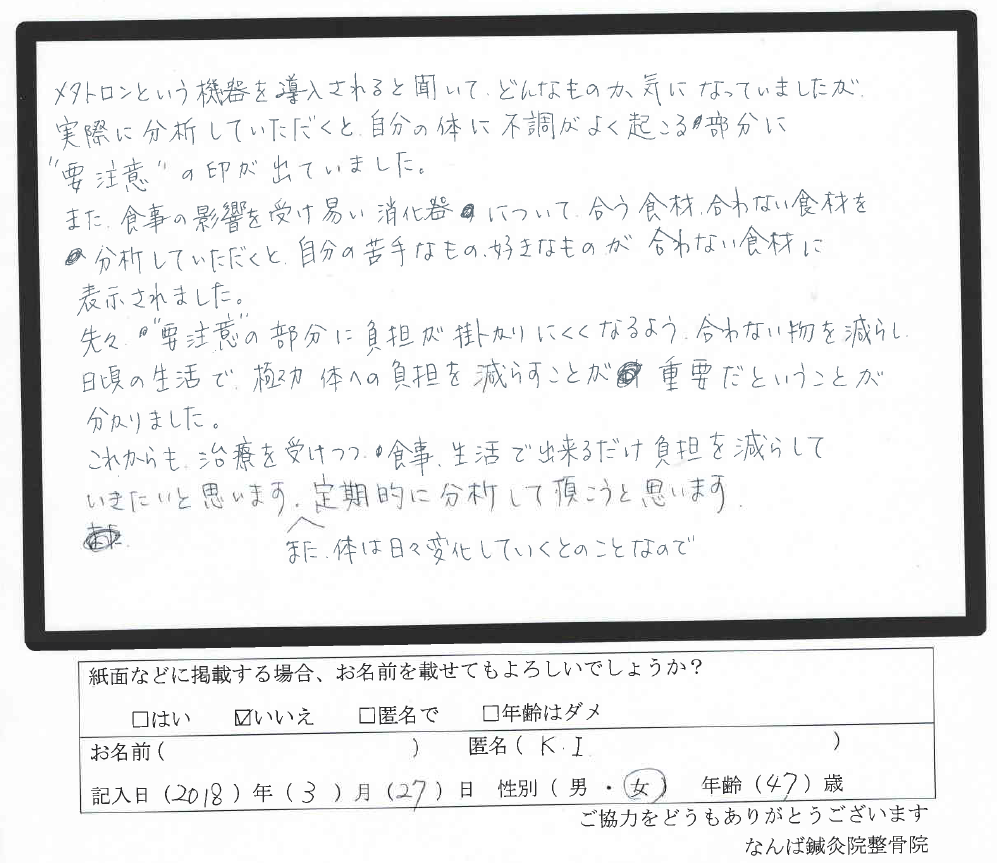 メタトロンという機器を導入されると聞いて、どんなものか、気になっていましたが、
実際に分析していただくと、自分の体に不調がよく起こる部分に
"要注意"の印が出ていました。
また、食事の影響を受け易い消化器について、合う食材、合わない食材を
分析していただくと、自分の苦手なもの、好きなものが合わない食材に
表示されました。
先々、"要注意"の部分に負担が掛かりにくくなるよう、合わない物を減らし、
日頃の生活で、極力体への負担を減らすことが重要だということが
分かりました。
これからも、治療を受けつつ、食事、生活で出来るだけ負担を減らして
いきたいと思います。定期的に分析して頂こうと思います。
また、体は日々変化していくとのことなので
紙面などに掲載する場合、お名前を載せてもよろしいでしょうか?
□はい ☑いいえ □匿名で □年齢はダメ
お名前( ) 匿名( K.I )
記入日(2018)年(3)月(27)日 性別(男・女) 年齢(47)歳
ご協力をどうもありがとうございます
なんば鍼灸院整骨院